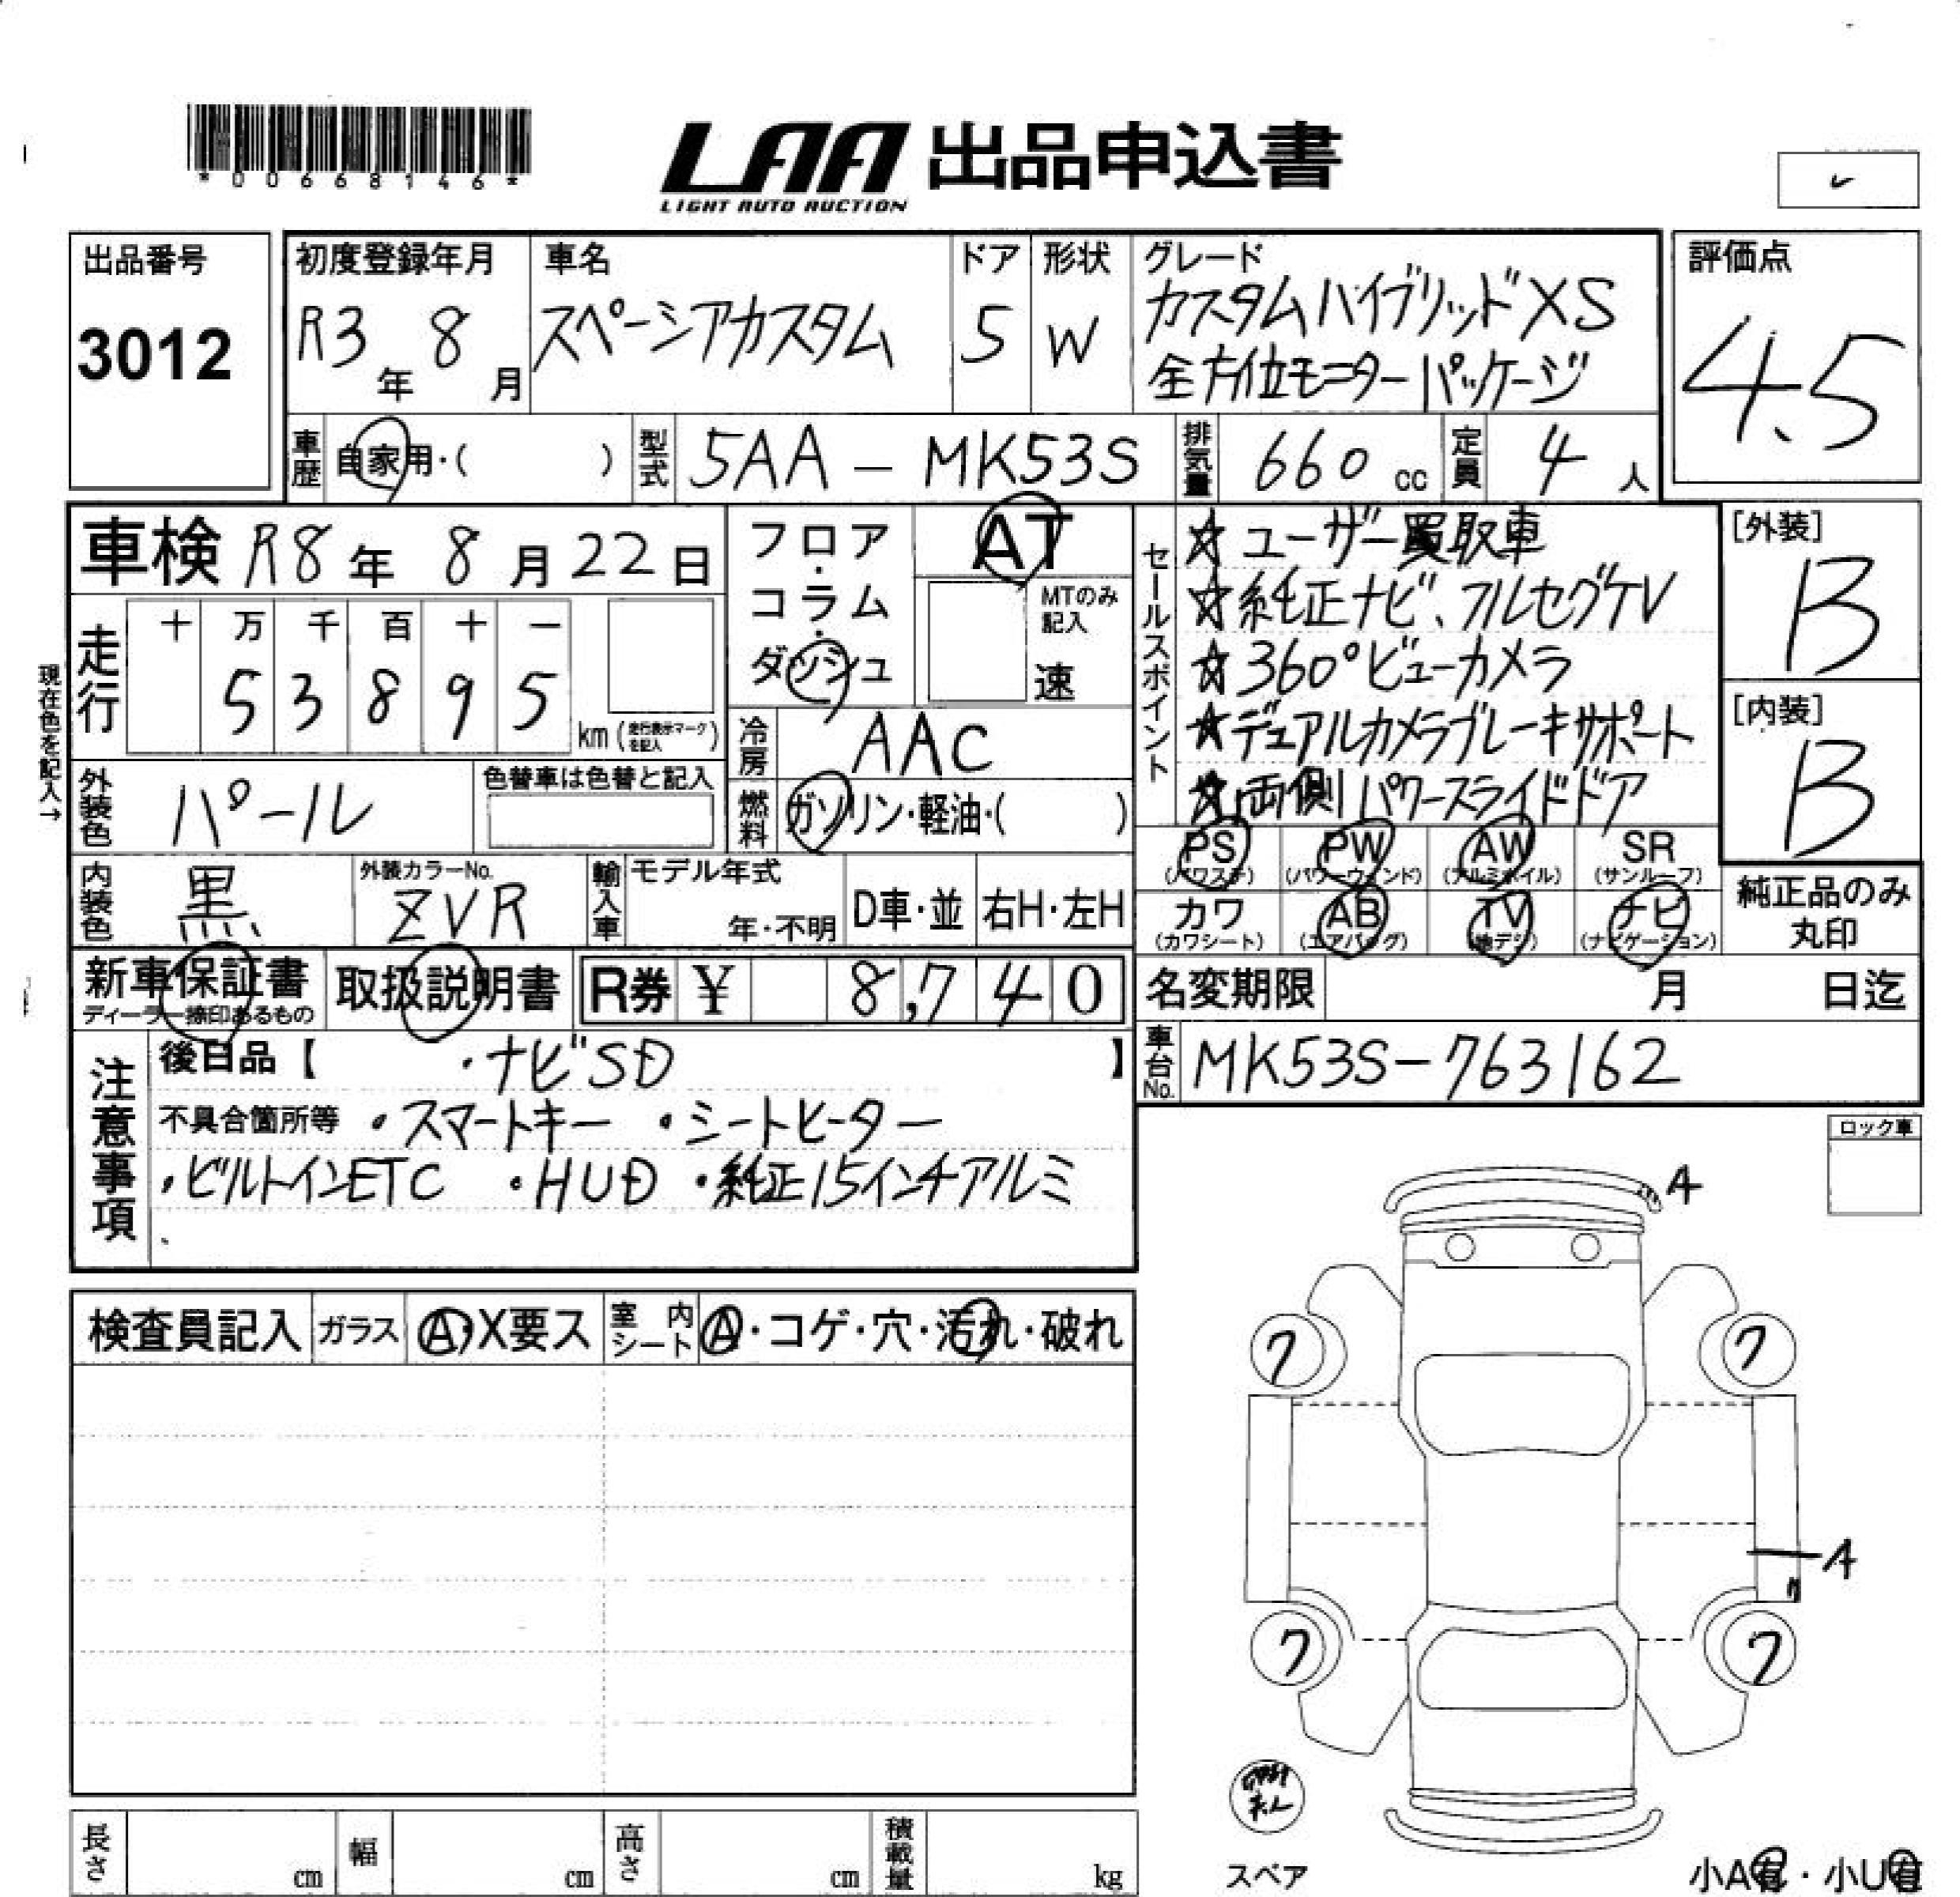 *00668146*
LAA 出品申込書
LIGHT AUTO AUCTION
出品番号
3012
初度登録年月
R3年 8月
車名
スペーシアカスタム
ドア
5
形状
W
グレード
カスタムハイブリッドXS
全方位モニターパッケージ
評価点
4.5
車歴 自家用・( )
型式 5AA - MK53S
排気量 660 cc
定員 4 人
車検 R8年 8月22日
フロア・コラム・ダッシュ
AT
MTのみ記入
速
セールスポイント
☆ユーザー買取車
☆純正ナビ、フルセグTV
☆360°ビューカメラ
☆デュアルカメラブレーキサポート
☆両側パワースライドドア
[外装]
B
[内装]
B
現在色を記入→
走行 十 万 千 百 十 一
5 3 8 9 5
km (走行表示マークを記入)
冷房 AAC
燃料 ガソリン・軽油・( )
外装色 パール
色替車は色替と記入
内装色 黒
外装カラーNo.
ZVR
輸入車 モデル年式
年・不明
D車・並 右H・左H
PS (パワステ) PW (パワーウィンド) AW (アルミホイル) SR (サンルーフ)
カワ (カワシート) AB (エアバッグ) TV (地デジ) ナビ (ナビゲーション)
純正品のみ
丸印
新車保証書
ディーラー捺印あるもの
取扱説明書
R券 ¥ 8,740
名変期限 月 日迄
車台No. MK53S-763162
注意事項
後日品【 ・ナビSD 】
不具合箇所等 ・スマートキー ・シートヒーター
・ビルトインETC ・HUD ・純正15インチアルミ
ロック車
A
検査員記入 ガラス A・X要ス 室内シート A・コゲ・穴・汚れ・破れ
7 7
A
7 7
長さ cm 幅 cm 高さ cm 積載量 kg
スペア
小A有・小U有